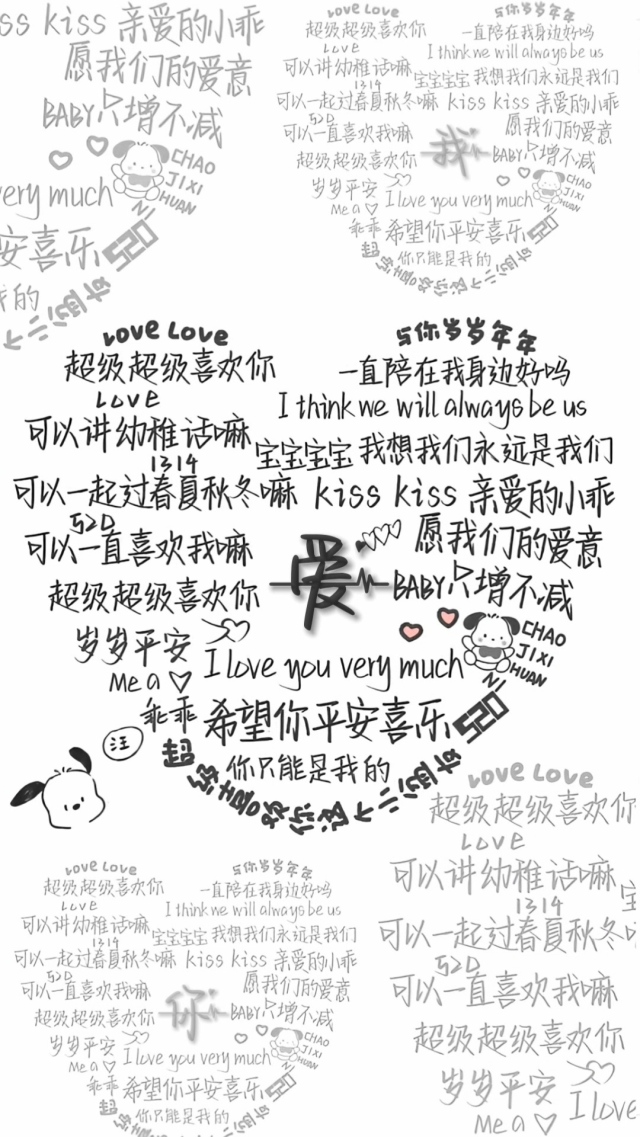 kiss kiss 亲爱的小乖
愿我们的爱意
BABY只增不减
CHAO
JIXI
HUAN
NI
very much
安喜乐
520
我的
Love Love
超级超级喜欢你
LOVE
可以讲幼稚话嘛
1314
可以一起过春夏秋冬嘛
520
可以一直喜欢我嘛
超级超级喜欢你
岁岁平安
Me a ♡
乖乖
与你岁岁年年
一直陪在我身边好吗
I think we will always be us
宝宝宝宝 我想我们永远是我们
kiss kiss 亲爱的小乖
愿我们的爱意
我
BABY只增不减
CHAO
JIXI
HUAN
NI
I love you very much
希望你平安喜乐
520
你只能是我的
Love Love
与你岁岁年年
超级超级喜欢你
一直陪在我身边好吗
LOVE
I think we will always be us
可以讲幼稚话嘛
宝宝宝宝 我想我们永远是我们
1314
可以一起过春夏秋冬嘛
kiss kiss 亲爱的小乖
520
愿我们的爱意
可以一直喜欢我嘛
爱
BABY只增不减
超级超级喜欢你
岁岁平安
CHAO
JIXI
HUAN
NI
I love you very much
Me a ♡
乖乖
希望你平安喜乐
520
汪
你只能是我的
Love Love
与你岁岁年年
超级超级喜欢你
一直陪在我身边好吗
LOVE
I think we will always be us
可以讲幼稚话嘛
宝宝宝宝 我想我们永远是我们
1314
可以一起过春夏秋冬嘛
kiss kiss 亲爱的小乖
520
愿我们的爱意
可以一直喜欢我嘛
你
BABY只增不减
超级超级喜欢你
岁岁平安
CHAO
JIXI
HUAN
NI
I love you very much
Me a ♡
乖乖
希望你平安喜乐
520
你只能是我的
Love Love
超级超级喜欢你
LOVE
可以讲幼稚话嘛
宝
1314
可以一起过春夏秋冬
520
可以一直喜欢我嘛
超级超级喜欢你
岁岁平安
I love
Me a ♡